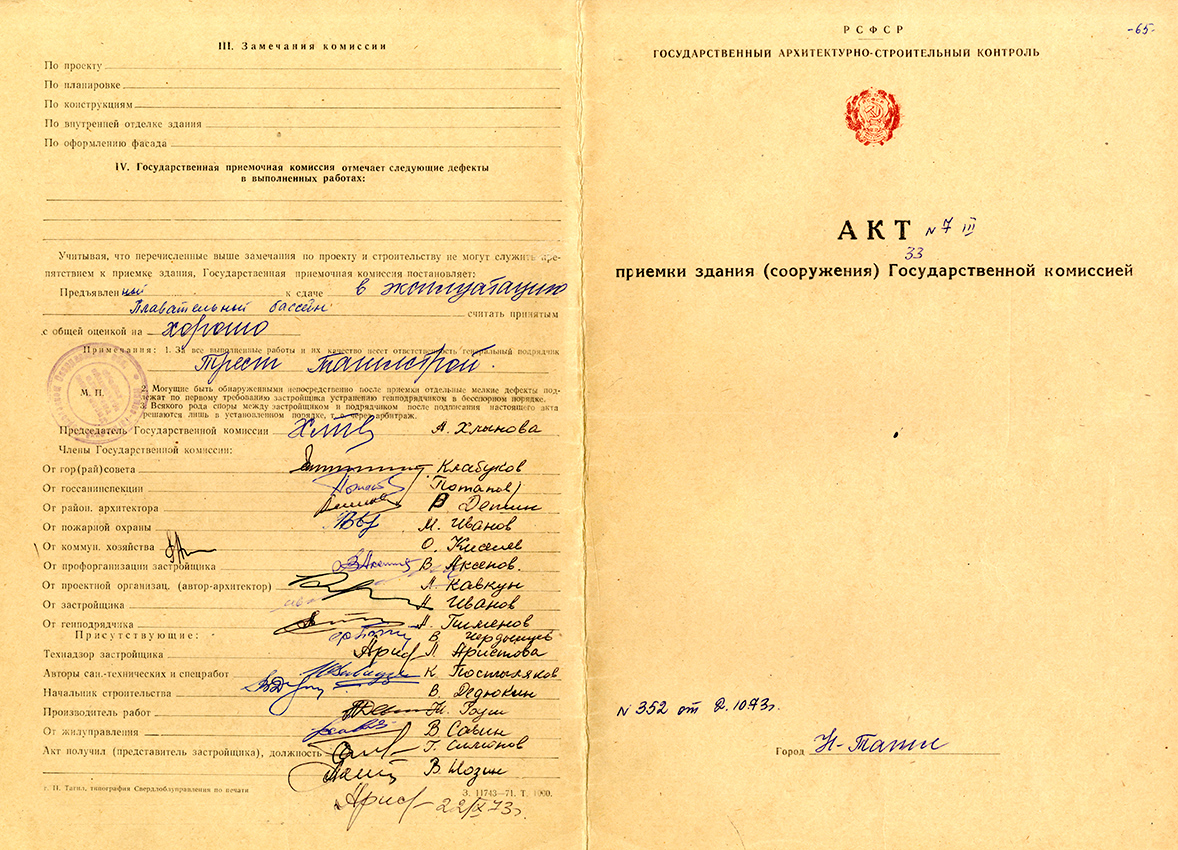 III. Замечания комиссии
По проекту
По планировке
По конструкциям
По внутренней отделке здания
По оформлению фасада
IV. Государственная приемочная комиссия отмечает следующие дефекты
в выполненных работах:
Учитывая, что перечисленные выше замечания по проекту и строительству не могут служить пре-
пятствием к приемке здания, Государственная приемочная комиссия постановляет:
Предъявленный к сдаче в эксплуатацию
Плавательный бассейн считать принятым
с общей оценкой на хорошо
Примечания: 1. За все выполненные работы и их качество несет ответственность генеральный подрядчик
Трест Тагилстрой.
М. П.
2. Могущие быть обнаруженными непосредственно после приемки отдельные мелкие дефекты под-
лежат по первому требованию застройщика устранению генподрядчиком в бесспорном порядке.
3. Всякого рода споры между застройщиком и подрядчиком после подписания настоящего акта
решаются лишь в установленном порядке, через арбитраж.
Председатель Государственной комиссии А. Хлынова
Члены Государственной комиссии:
От гор(рай)совета Клабуков
От госсанинспекции Потапов)
От район. архитектора
От пожарной охраны М. Иванов
От коммун. хозяйства О. Киселев
От профорганизации застройщика В. Аксенов.
От проектной организац. (автор-архитектор) Л. Кавкун
От застройщика А. Иванов
От генподрядчика А. Пименов
Присутствующие: В. Чердынцев
Технадзор застройщика Л. Аристова
Авторы сан.-технических и спецработ К. Постыляков
Начальник строительства В. Дедюкин
Производитель работ
От жилуправления В Савин
Акт получил (представитель застройщика), должность Г. Симонов
г. Н. Тагил, типография Свердлоблуправления по печати З. 11743—71. Т. 1000.
22/X 73г.
-65-
РСФСР
ГОСУДАРСТВЕННЫЙ АРХИТЕКТУРНО-СТРОИТЕЛЬНЫЙ КОНТРОЛЬ
АКТ N 7 III
33
приемки здания (сооружения) Государственной комиссией
N 352 от 2.10.73г.
Город Н-Тагил